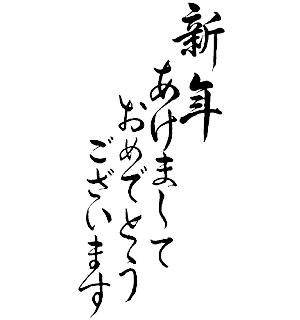 新年
あけまして
おめでとう
ございます